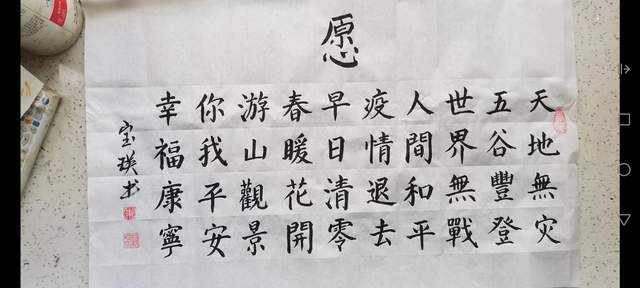 愿
天地無灾
五谷豐登
世界無戰
人間和平
疫情退去
早日清零
春暖花開
游山觀景
你我平安
幸福康寧
宝瑛书